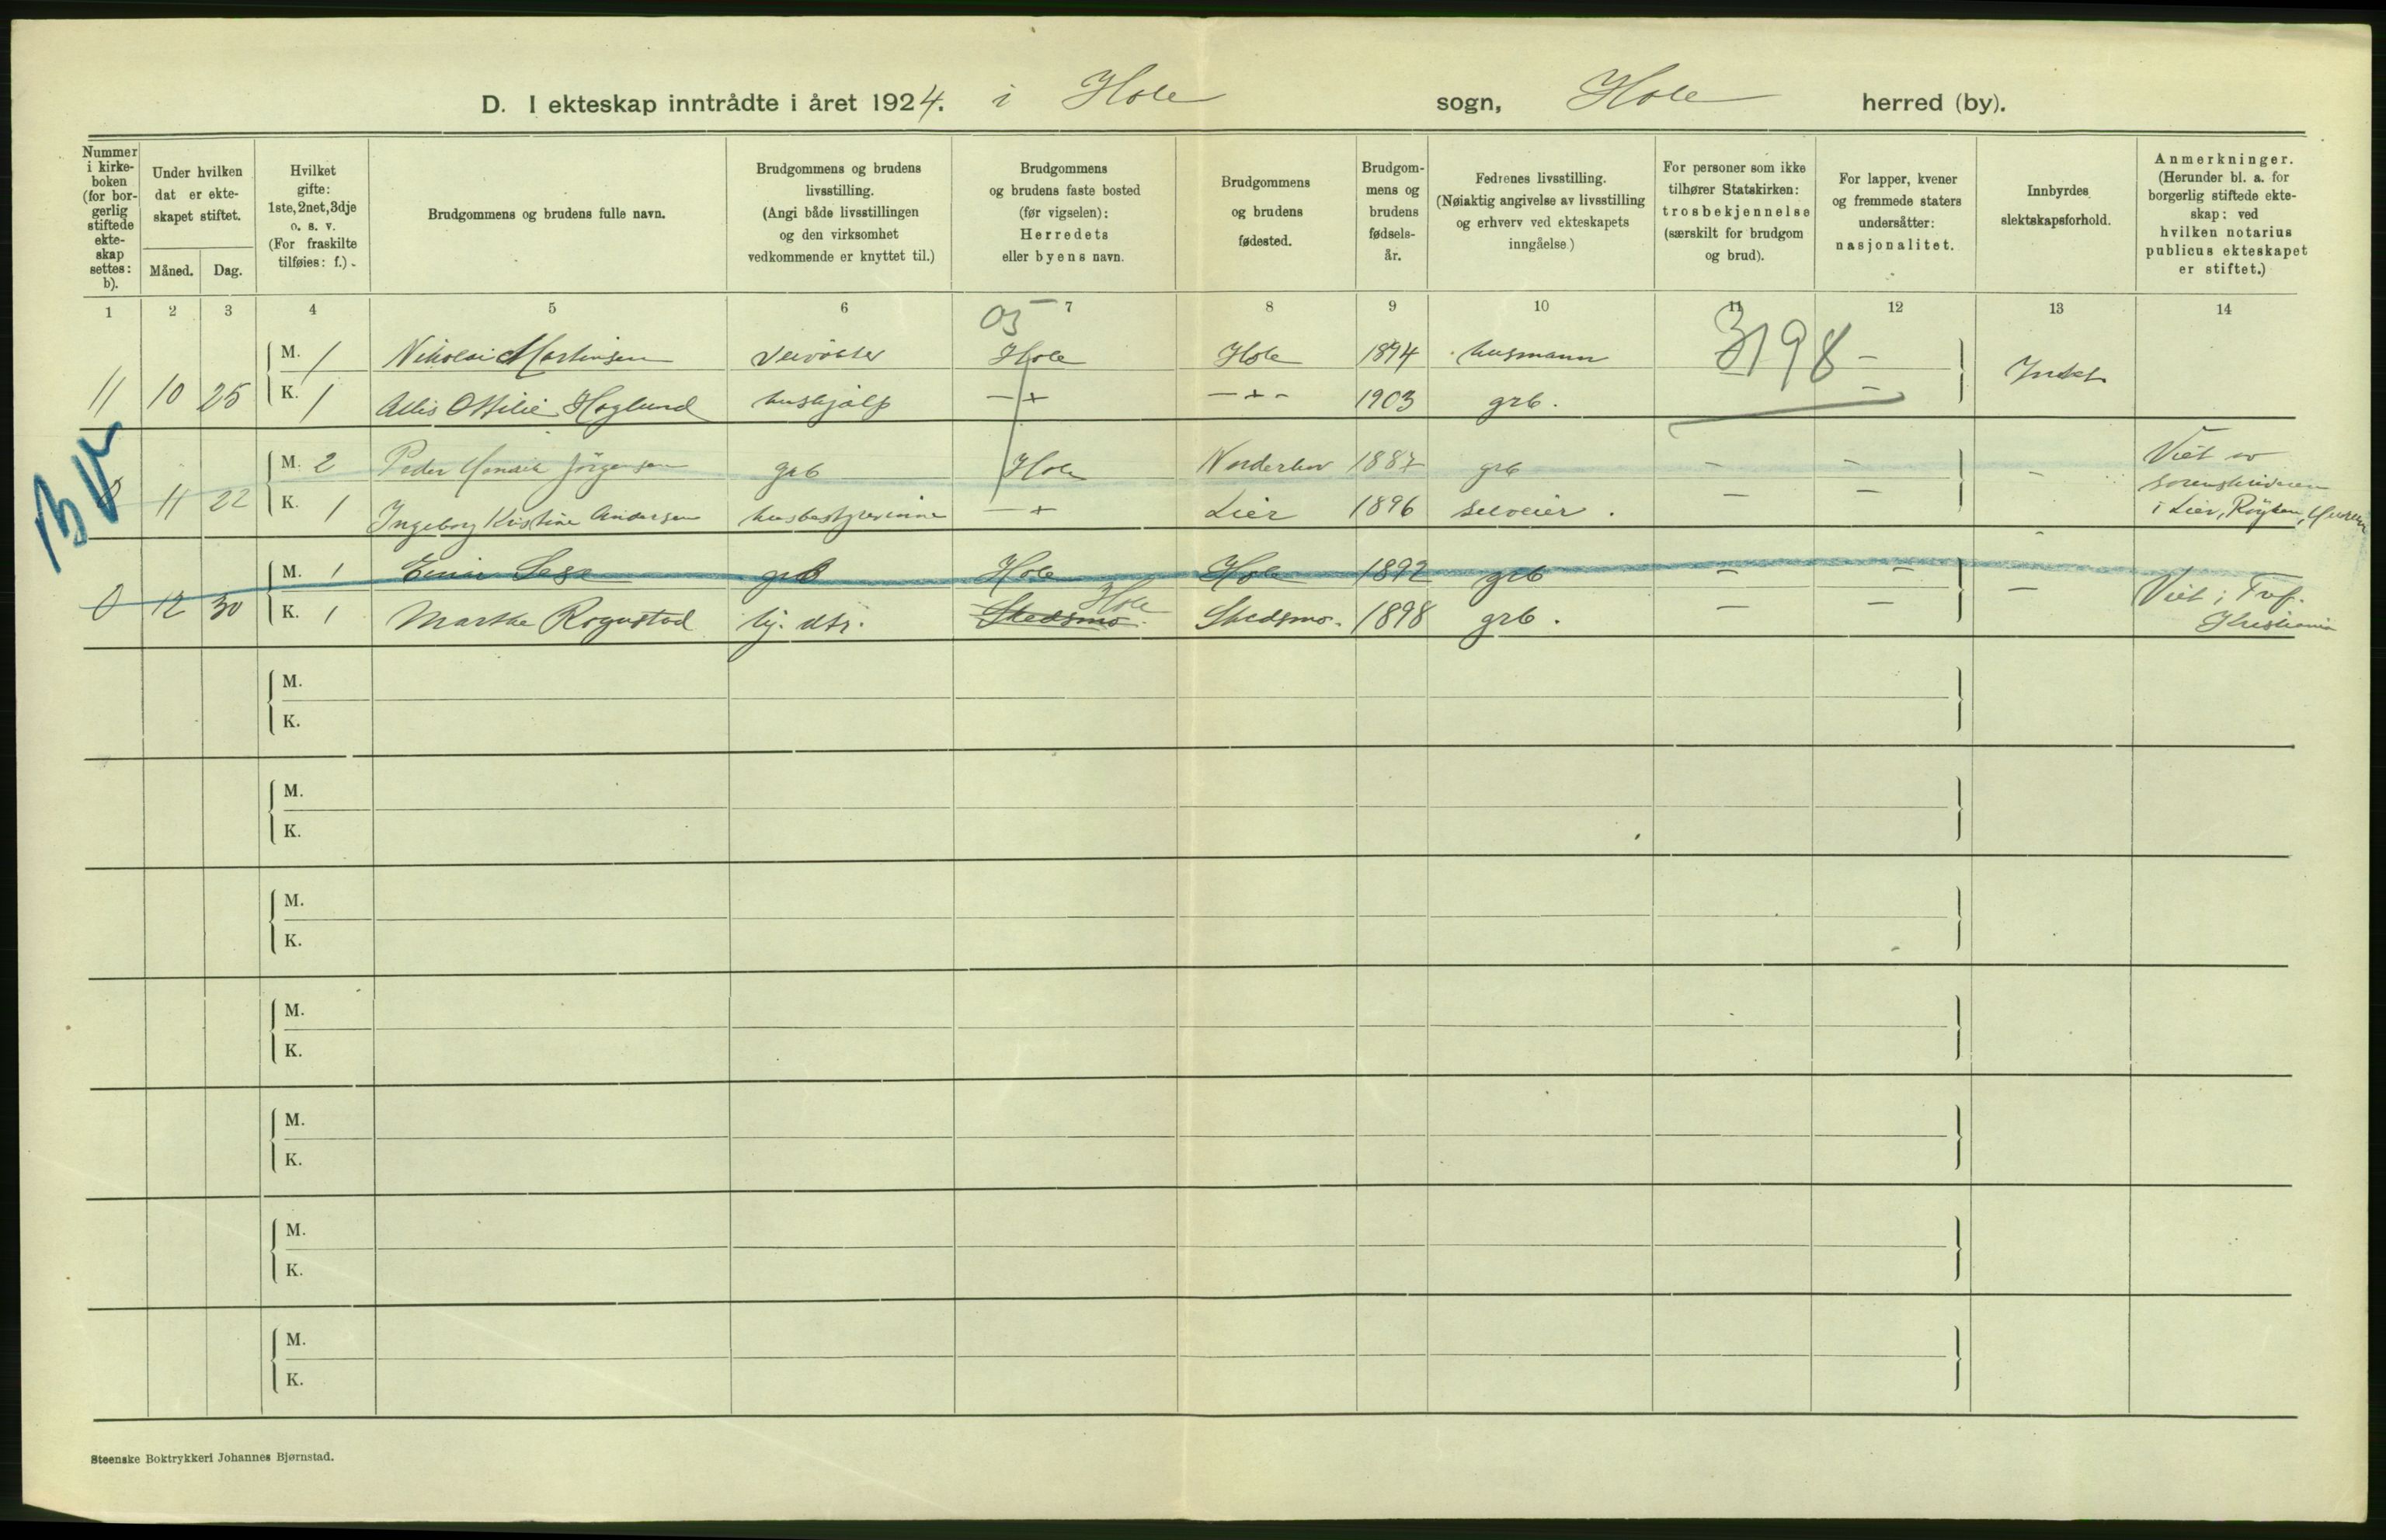 D. I ekteskap inntrådte i året 1924. i Hole sogn, Hole herred (by).
Nummer i kirke-boken (for bor-gerlig stiftede ekte-skap settes: b).
Under hvilken dat er ekte-skapet stiftet.
Måned. Dag.
Hvilket gifte: 1ste, 2net, 3dje o. s. v. (For fraskilte tilføies: f.)
Brudgommens og brudens fulle navn.
Brudgommens og brudens livsstilling. (Angi både livsstillingen og den virksomhet vedkommende er knyttet til.)
Brudgommens og brudens faste bosted (før vigselen): Herredets eller byens navn.
Brudgommens og brudens fødested.
Brudgom-mens og brudens fødsels-år.
Fedrenes livsstilling. (Nøiaktig angivelse av livsstilling og erhverv ved ekteskapets inngåelse)
For personer som ikke tilhører Statskirken: trosbekjennelse (særskilt for brudgom og brud).
For lapper, kvener og fremmede staters undersåtter: nasjonalitet.
Innbyrdes slektskapsforhold.
Anmerkninger. (Herunder bl. a. for borgerlig stiftede ekte-skap: ved hvilken notarius publicus ekteskapet er stiftet.)
1 2 3 4 5 6 7 8 9 10 11 12 13 14
03 3198
M. 1 Nikolai Martinsen Hole Hole 1894 husmann –
11 10 25 K. 1 Allis Ottilie Høglund hushjålp –+ –+– 1903 grb. –
BV
M. 2 Peder Henrik Jörgensen grb Hole Norderhov 1887 grb – – – Viet av
11 22 K. 1 Ingeborg Kristine Andersen husbestyrerinne –+ Lier 1896 selveier. – – sorenskriveren
i Lier, Röyken, Hurum
M. 1 Hole Hole 1892 grb – – –
0 12 30 K. 1 Marthe Rogustad hj. dtr. Skedsmo. Hole Skedsmo. 1898 grb. – – Viet i
Kristiania
M.
K.
M.
K.
M.
K.
M.
K.
M.
K.
M.
K.
M.
K.
Steenske Boktrykkeri Johannes Bjørnstad.